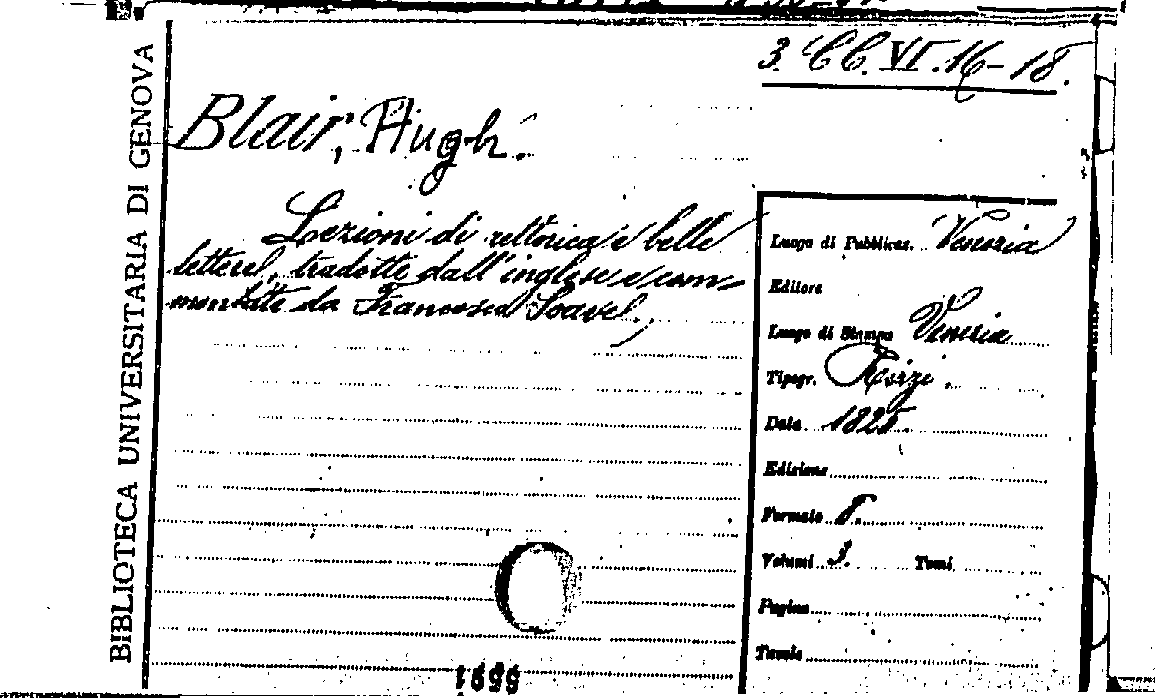 3. CC. VI. 16-18.
Blair, Hugh.
Lezioni di rettorica e belle
lettere, tradotte dall'inglese e com-
mentate da Francesco Soave.
Luogo di Pubblicaz. Venezia
Editore
Luogo di Stampa Venezia
Tipogr. Rizzi.
Data 1825.
Edizione
Formato 8.
Volumi 3. Tomi
Pagine
Tavole
BIBLIOTECA UNIVERSITARIA DI GENOVA